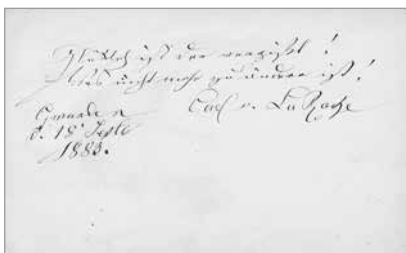 Glücklich ist der vergißt!
Was nicht mehr zu ändern ist!
Carl v. LaRoche
Gmunden
d. 18
1883.